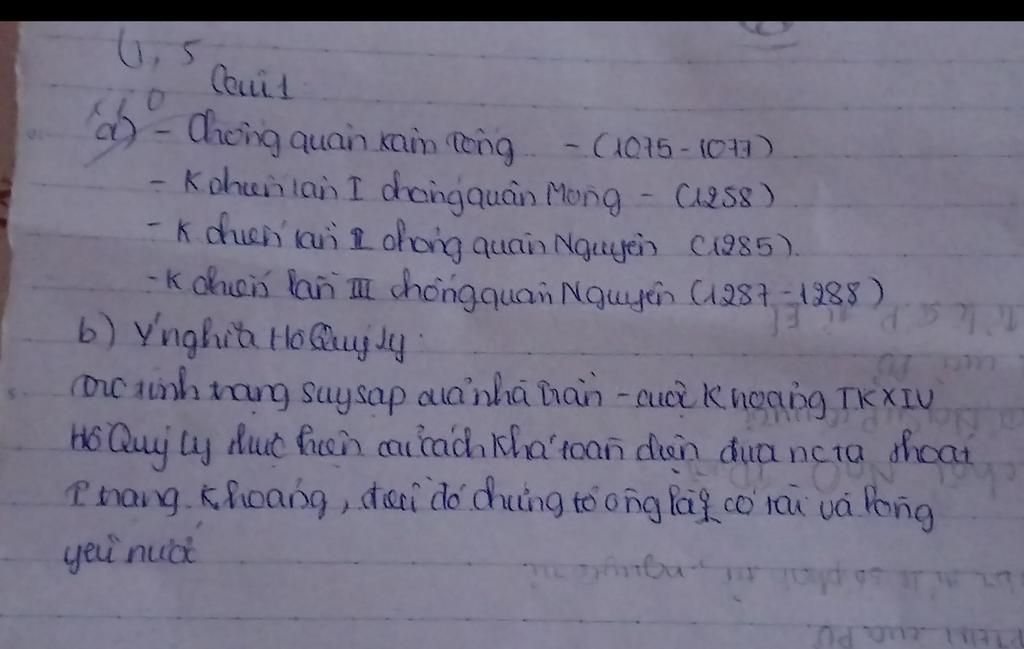 1,5
Câu 1
a) - Chống quân xâm Tống - (1075 - 1077)
- K chiến lần I chống quân Mông - (1258)
- K chiến lần II chống quân Nguyên (1285).
- K chiến lần III chống quân Nguyên (1287 - 1288)
b) Ý nghĩa Hồ Quý Ly
trước tình trạng suy sập của nhà Trần - cuộc khoảng TK XIV
Hồ Quý Ly thực hiện cải cách khá toàn diện đưa nc ta thoát
T trạng khoảng, điều đó chứng tỏ ông là có tài và lòng
yêu nước